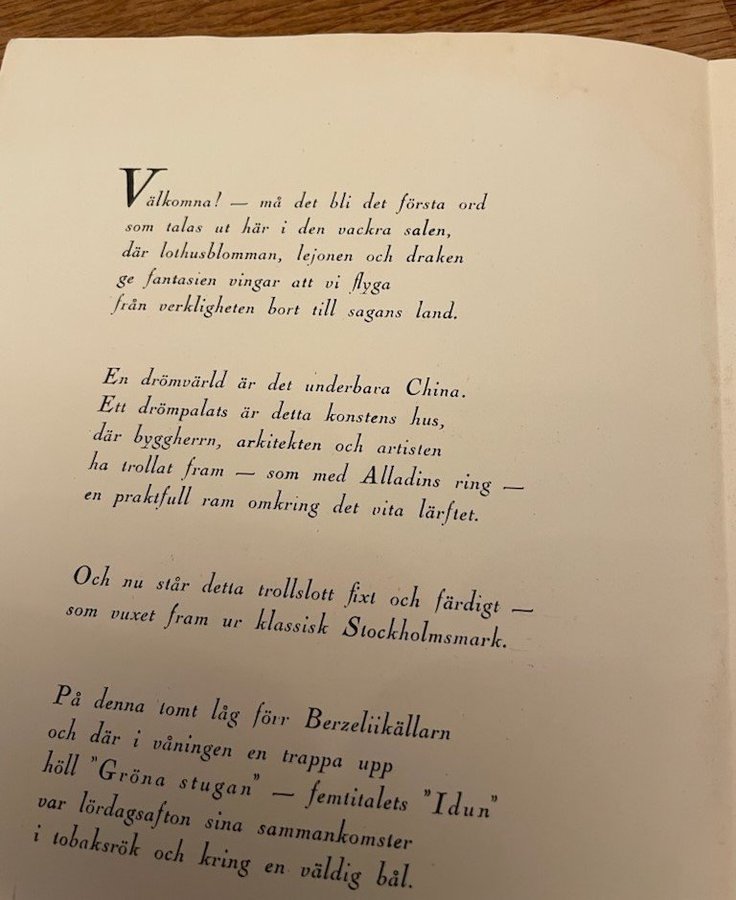 Välkomna! — må det bli det första ord
som talas ut här i den vackra salen,
där lothusblomman, lejonen och draken
ge fantasien vingar att vi flyga
från verkligheten bort till sagans land.
En drömvärld är det underbara China.
Ett drömpalats är detta konstens hus,
där byggherrn, arkitekten och artisten
ha trollat fram — som med Alladins ring —
en praktfull ram omkring det vita lärftet.
Och nu står detta trollslott fixt och färdigt —
som vuxet fram ur klassisk Stockholmsmark.
På denna tomt låg förr Berzeliikällarn
och där i våningen en trappa upp
höll "Gröna stugan" — femtitalets "Idun"
var lördagsafton sina sammankomster
i tobaksrök och kring en väldig bål.